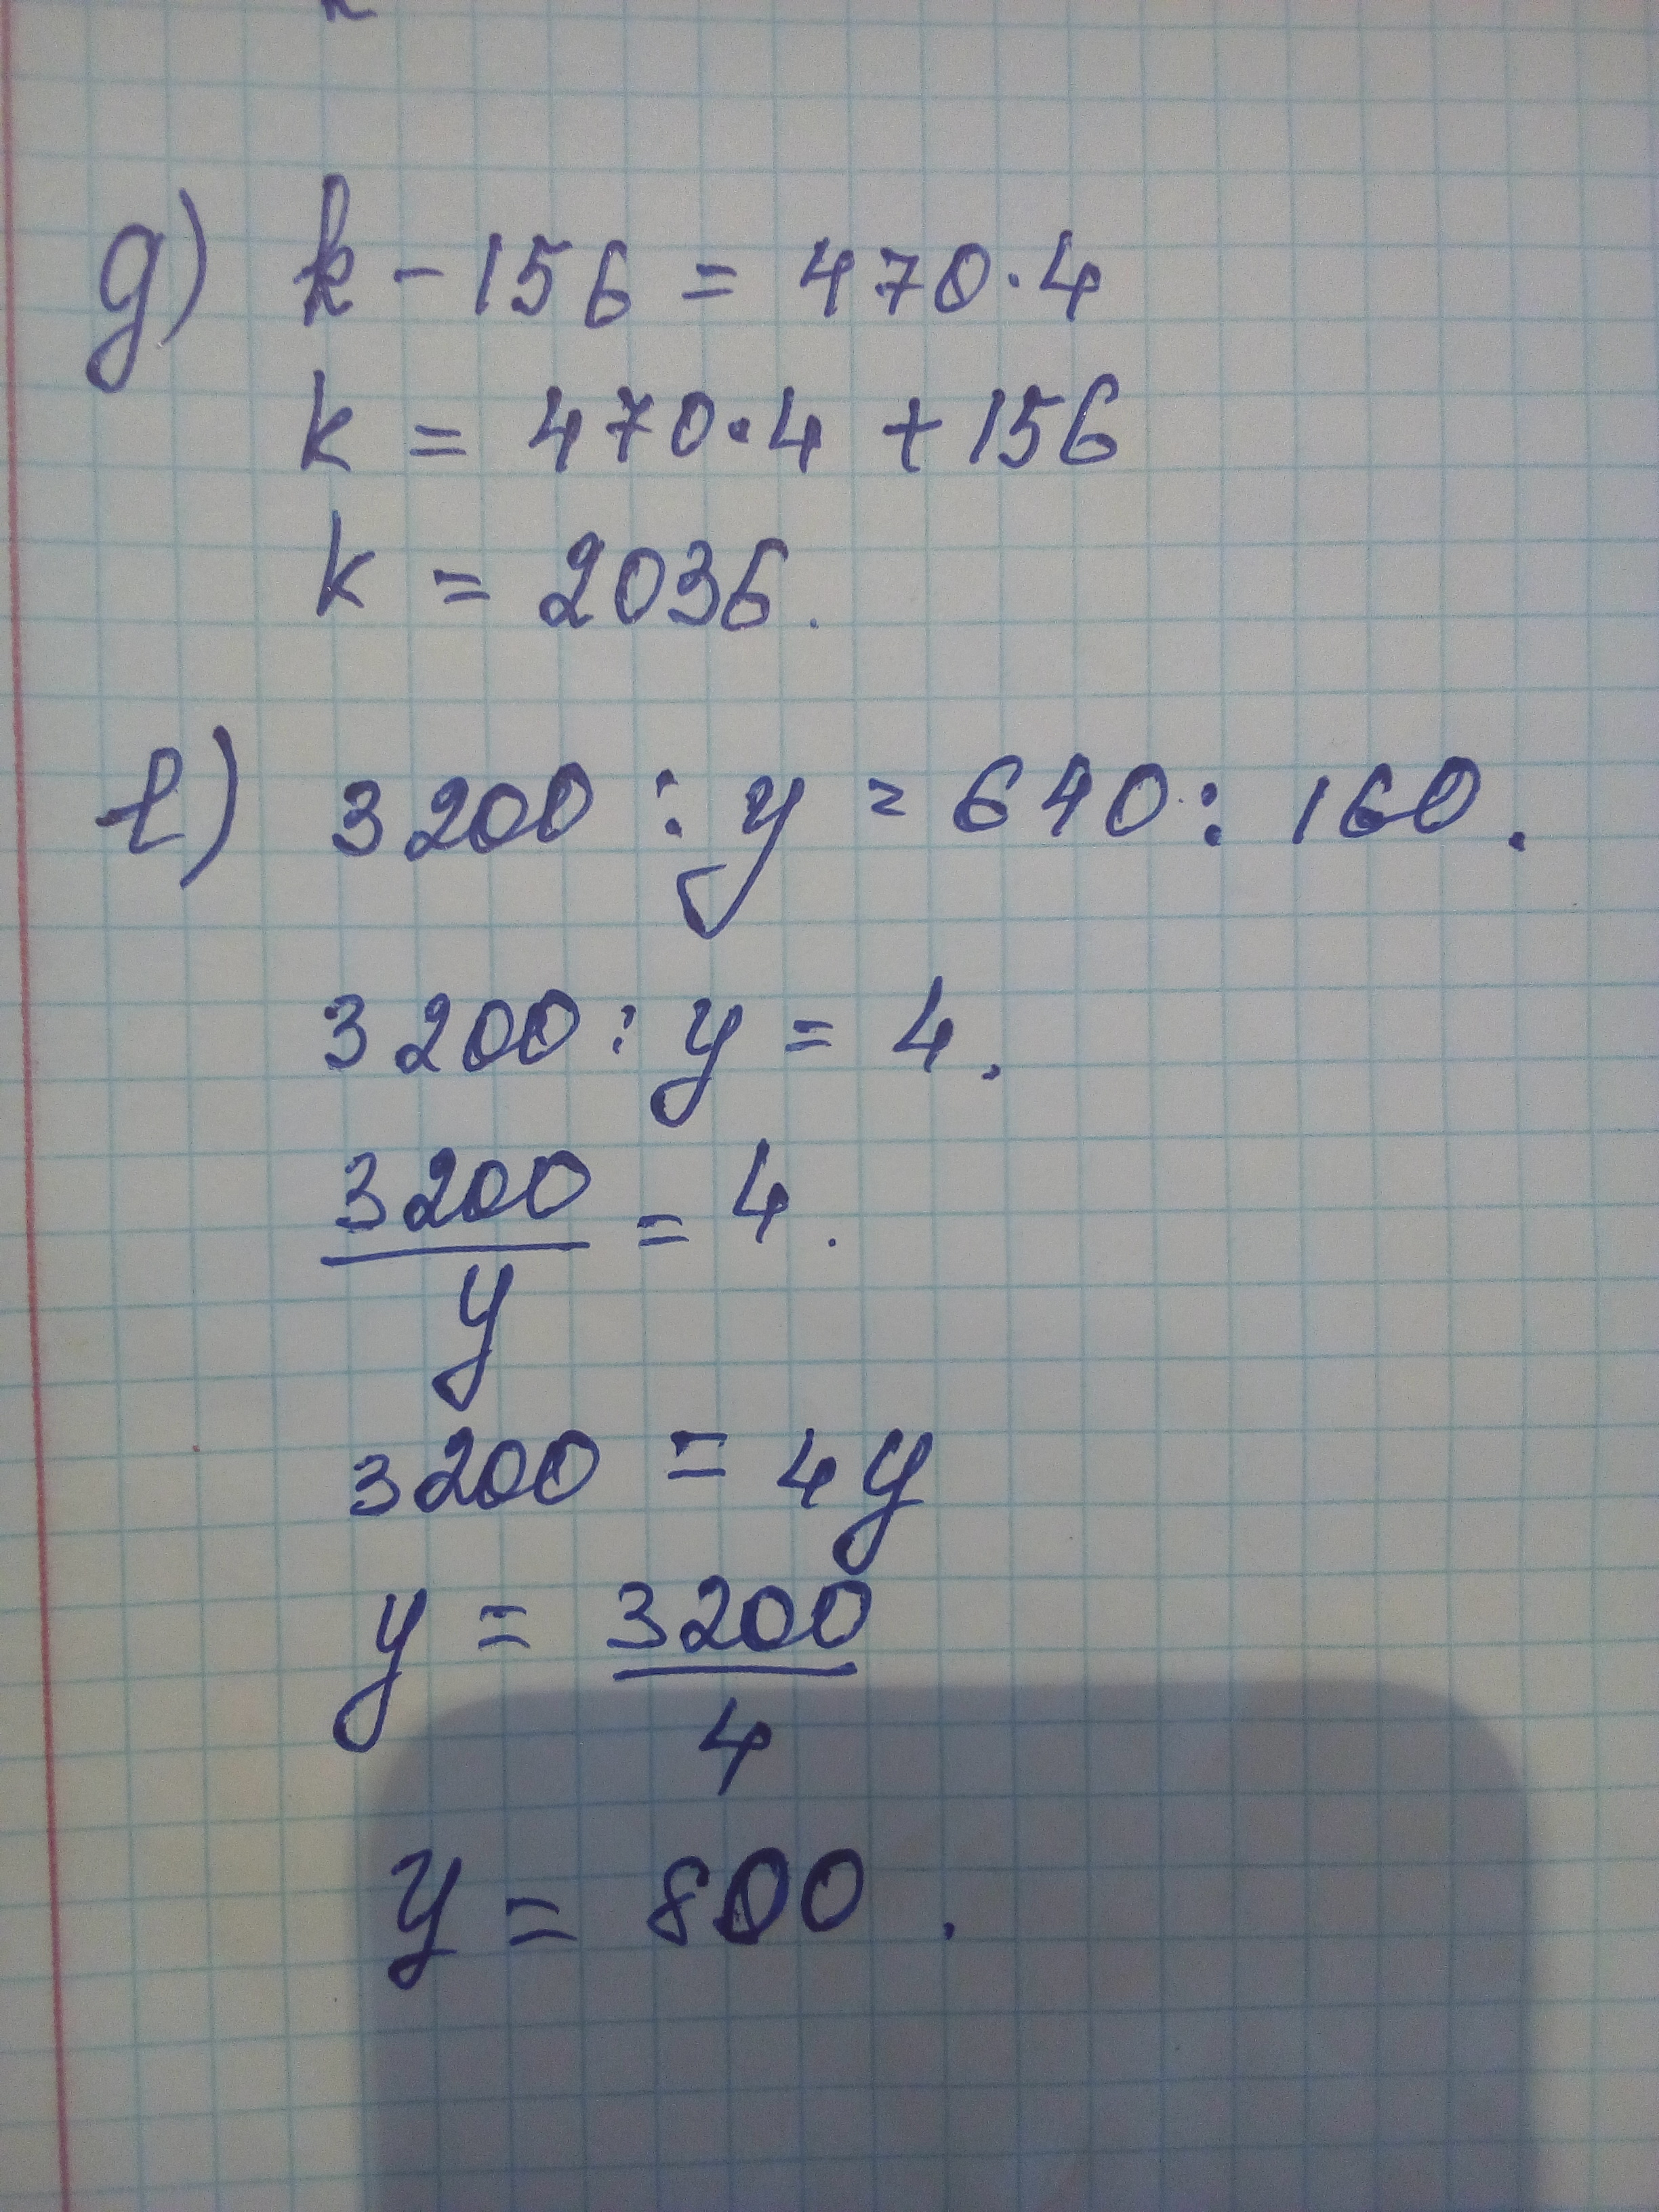 g) k - 156 = 470 · 4
k = 470 · 4 + 156
k = 2036.
e) 3200 : y = 640 : 160.
3200 : y = 4.
3200/y = 4.
3200 = 4y
y = 3200/4
y = 800.